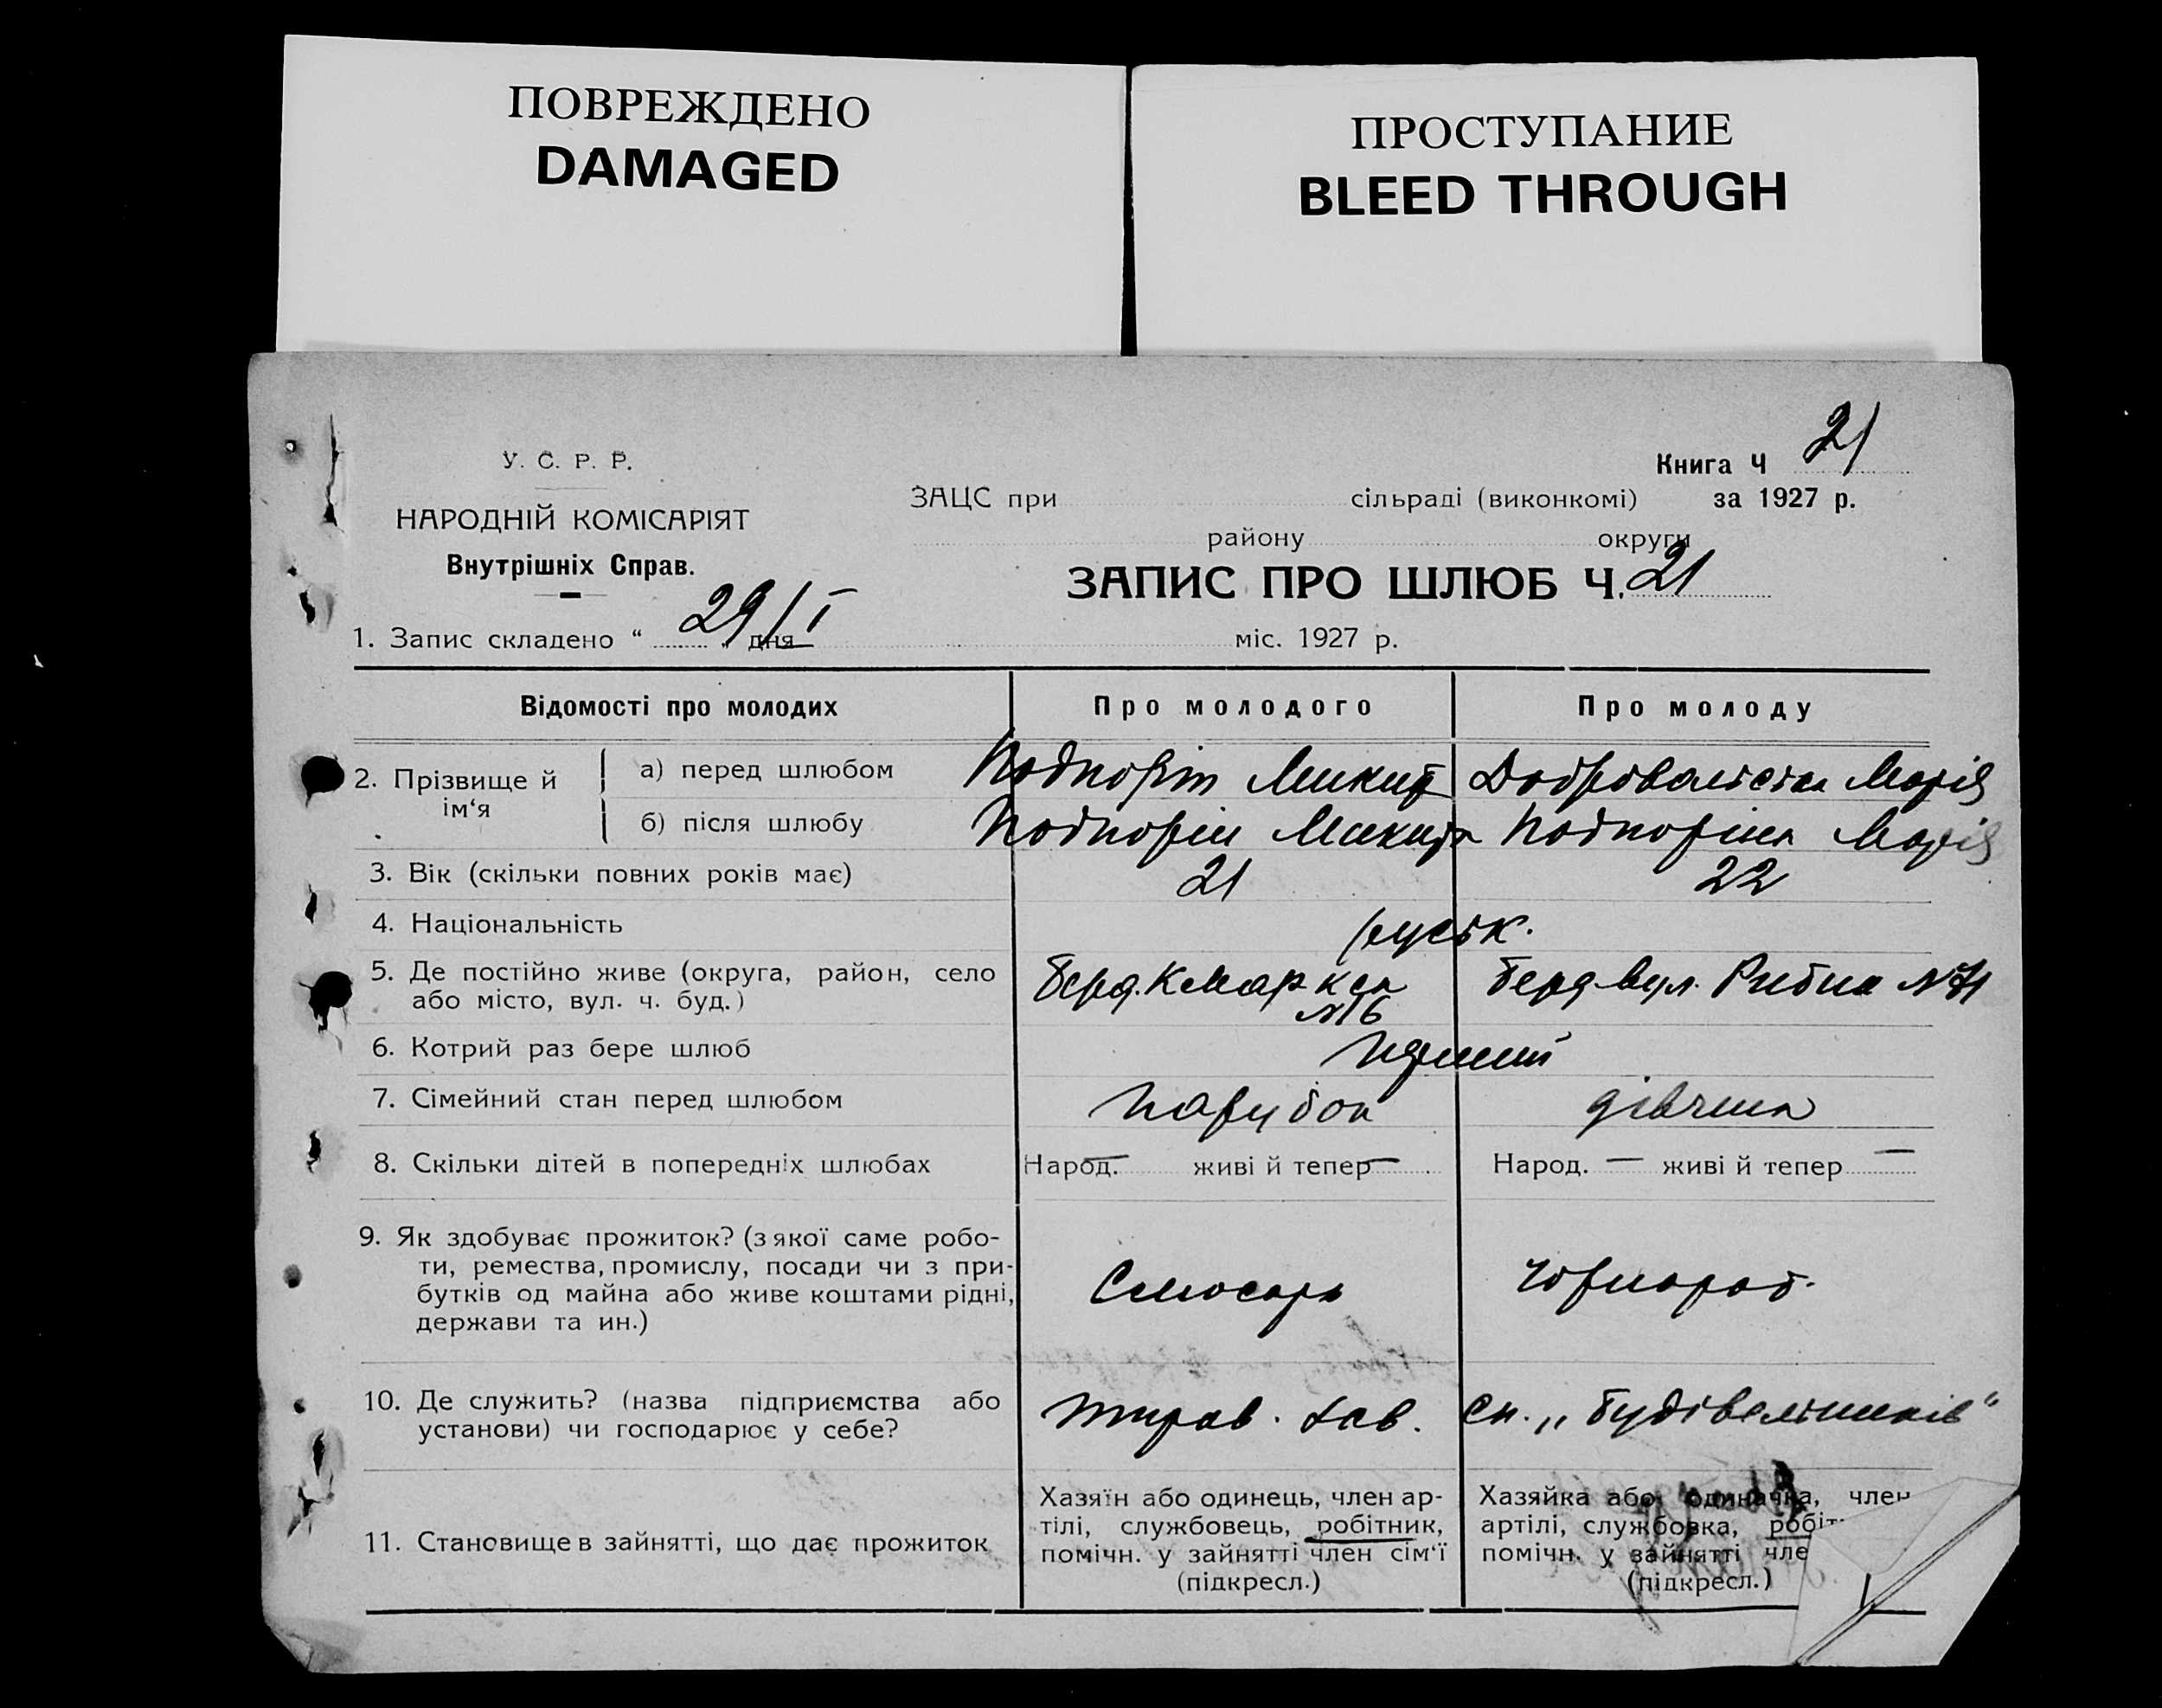 ПОВРЕЖДЕНО
DAMAGED
ПРОСТУПАНИЕ
BLEED THROUGH
У. С. Р. Р.
НАРОДНІЙ КОМІСАРІЯТ
Внутрішніх Справ.
Книга Ч 21
ЗАЦС при сільраді (виконкомі) за 1927 р.
району округи
ЗАПИС ПРО ШЛЮБ Ч. 21
1. Запис складено “ 29/I „ дня міс. 1927 р.
Відомості про молодих
Про молодого
Про молоду
2. Прізвище й ім‘я
а) перед шлюбом
Микита
Марія
б) після шлюбу
Микита
Марія
3. Вік (скільки повних років має)
21
22
4. Національність
руськ.
5. Де постійно живе (округа, район, село
або місто, вул. ч. буд.)
Берд. К Маркса
№16
Берд вул. Рибна
6. Котрий раз бере шлюб
перший
7. Сімейний стан перед шлюбом
парубок
дівчина
8. Скільки дітей в попередніх шлюбах
Народ. — живі й тепер —
Народ. — живі й тепер —
9. Як здобуває прожиток? (з якої саме робо-
ти, ремества, промислу, посади чи з при-
бутків од майна або живе коштами рідні,
держави та ин.)
Слюсарь
Чорнороб.
10. Де служить? (назва підприємства або
установи) чи господарює у себе?
зав.
Сп. „Будівельників“
11. Становище в зайнятті, що дає прожиток
Хазяїн або одинець, член ар-
тілі, службовець, робітник,
помічн. у зайнятті член сім‘ї
(підкресл.)
Хазяйка або одиначка, член
артілі, службовка, робіт
помічн. у зайнятті чле
(підкресл.)